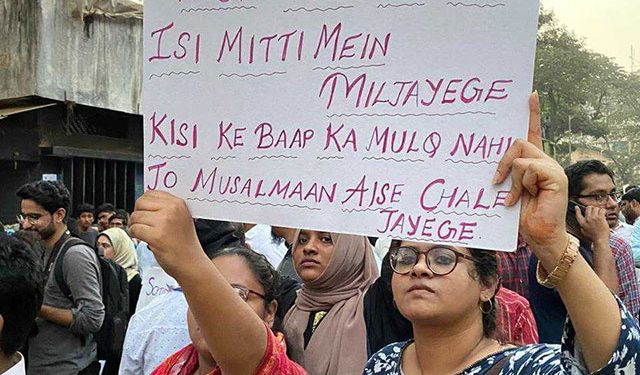 ISI MITTI MEIN
MILJAYEGE
KISI KE BAAP KA MULQ NAHI
JO MUSALMAAN AISE CHALE
JAYEGE